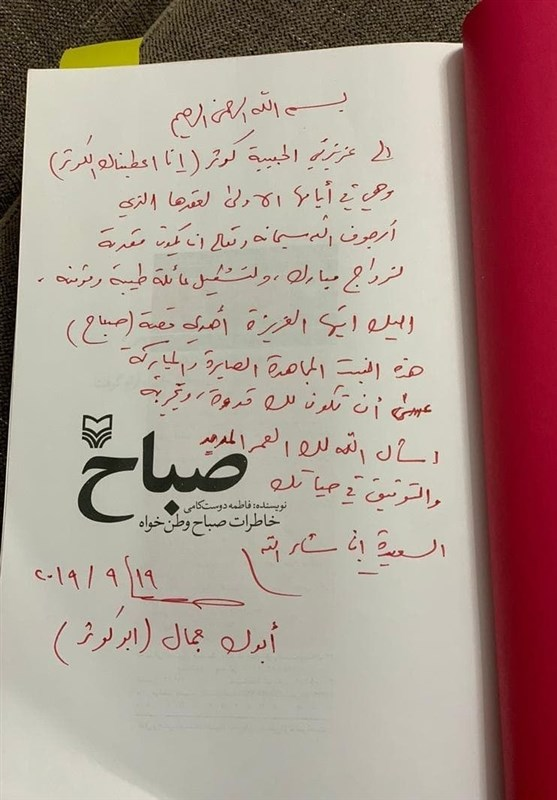 بسم الله الرحمن الرحيم
الى عزيزتي الحبيبة كوثر (إنا اعطيناك الكوثر)
وهي في أيامها الاولى لعقدها الذي
أرجو من الله سبحانه وتعالى ان يكون مقدمة
لزواج مبارك، ولتشكيل عائلة طيبة ومؤمنة،
اليك ايتها العزيزة أهدي قصة (صباح)
هذه البنت المجاهدة الصابرة والمباركة
عسى أن تكون لك قدوة، وتجربة
اسأل الله لك العمر المديد
صباح
والتوفيق في حياتك
نویسنده: فاطمه دوست‌کامی
خاطرات صباح وطن‌خواه
السعيدة إن شاء الله
٢٠١٩ / ٩ / ١٩
أبوك جمال (ابو كوثر)